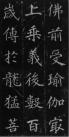 佛前受瑜伽最
上乘義後數百
歲傳於龍猛菩